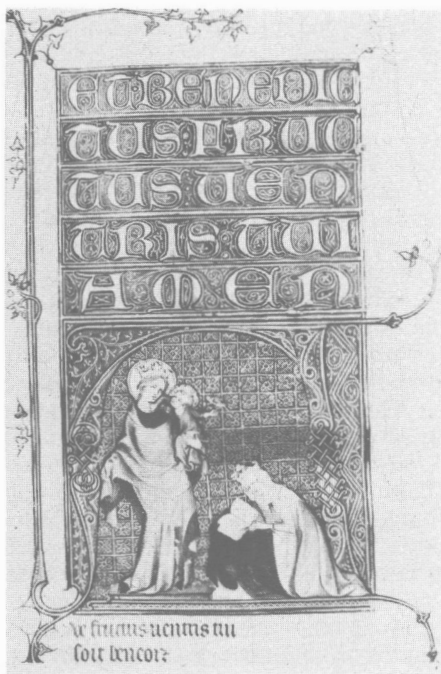 ET BENEDIC
TUS FRUC
TUS VEN
TRIS TUI
AMEN
fructus uentris tui
soit